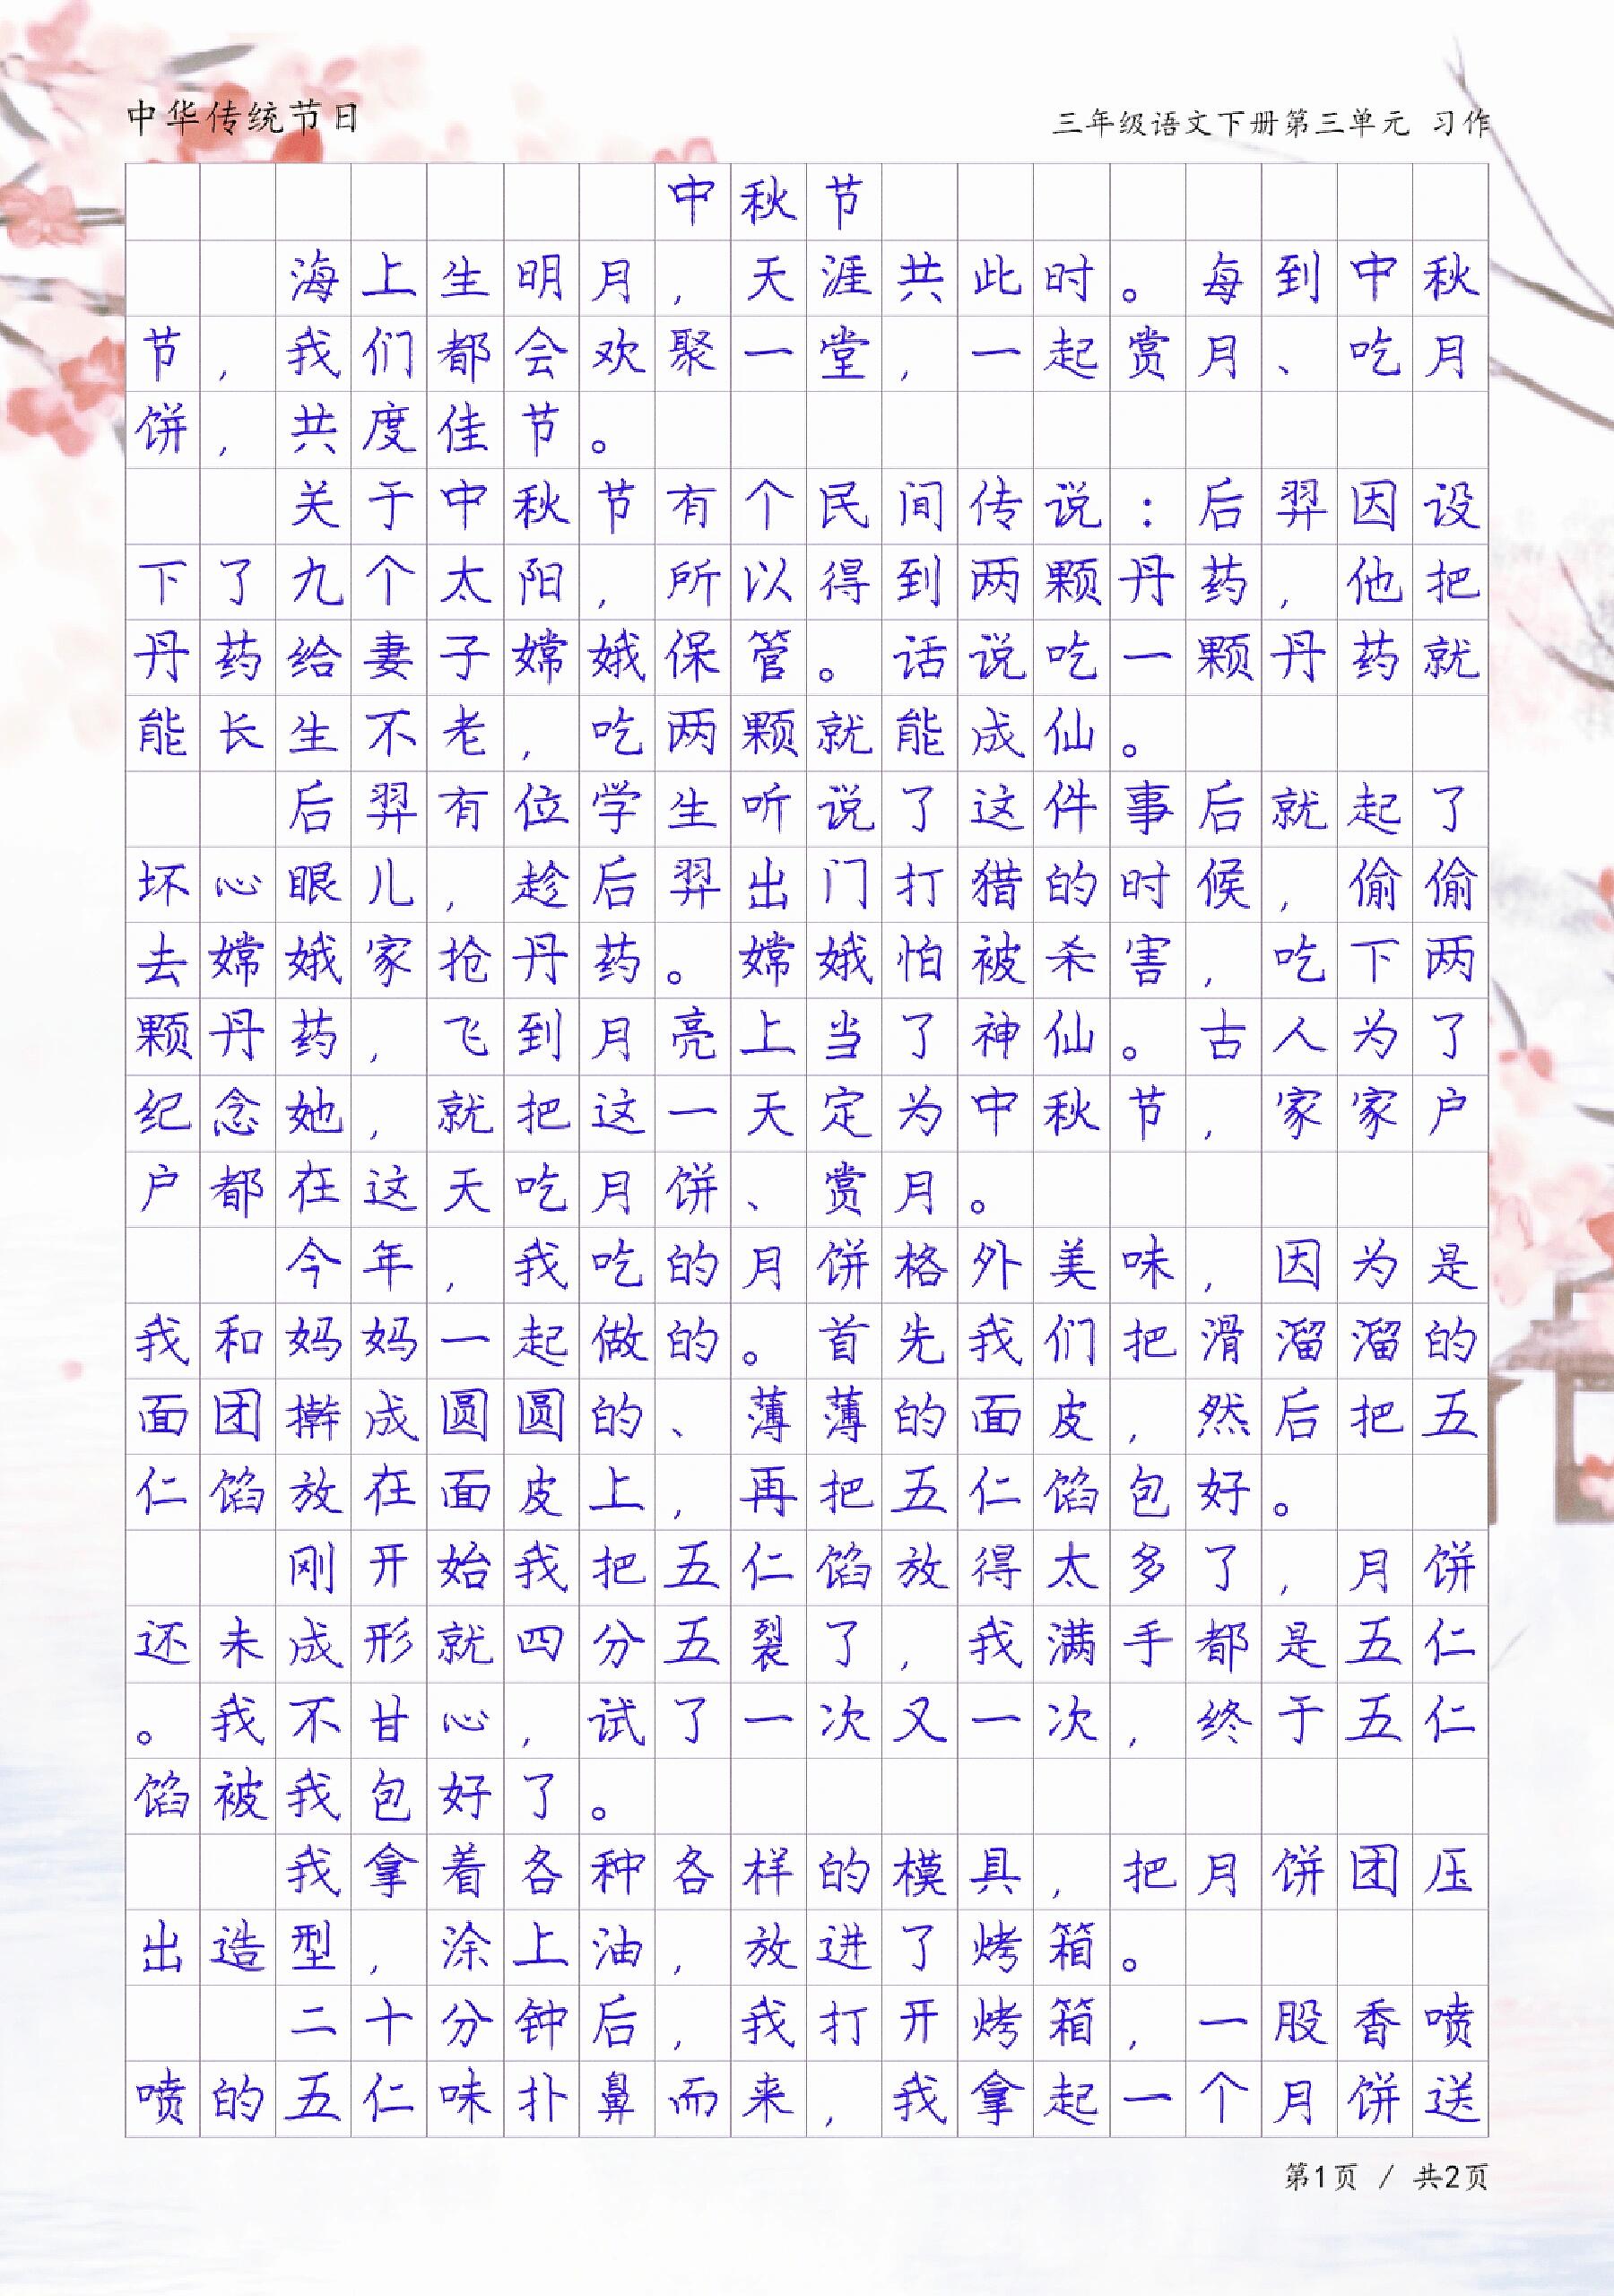 中华传统节日
三年级语文下册第三单元 习作
中秋节
海上生明月，天涯共此时。每到中秋
节，我们都会欢聚一堂，一起赏月、吃月
饼，共度佳节。
关于中秋节有个民间传说：后羿因设
下了九个太阳，所以得到两颗丹药，他把
丹药给妻子嫦娥保管。话说吃一颗丹药就
能长生不老，吃两颗就能成仙。
后羿有位学生听说了这件事后就起了
坏心眼儿，趁后羿出门打猎的时候，偷偷
去嫦娥家抢丹药。嫦娥怕被杀害，吃下两
颗丹药，飞到月亮上当了神仙。古人为了
纪念她，就把这一天定为中秋节，家家户
户都在这天吃月饼、赏月。
今年，我吃的月饼格外美味，因为是
我和妈妈一起做的。首先我们把滑溜溜的
面团擀成圆圆的、薄薄的面皮，然后把五
仁馅放在面皮上，再把五仁馅包好。
刚开始我把五仁馅放得太多了，月饼
还未成形就四分五裂了，我满手都是五仁
。我不甘心，试了一次又一次，终于五仁
馅被我包好了。
我拿着各种各样的模具，把月饼团压
出造型，涂上油，放进了烤箱。
二十分钟后，我打开烤箱，一股香喷
喷的五仁味扑鼻而来，我拿起一个月饼送
第1页 / 共2页